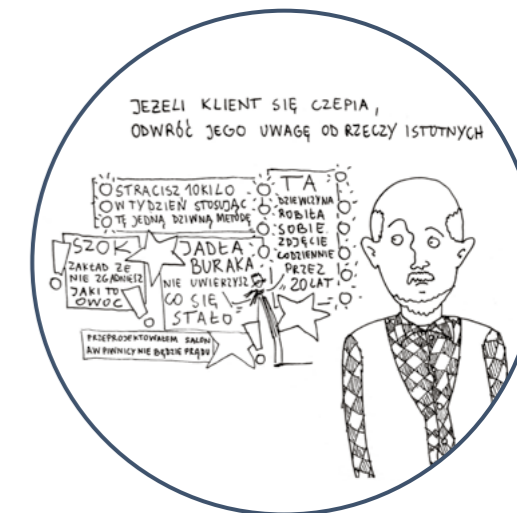 JEŻELI KLIENT SIĘ CZEPIA,
ODWRÓĆ JEGO UWAGĘ OD RZECZY ISTOTNYCH
STRACISZ 10KILO
W TYDZIEŃ STOSUJĄC
TĘ JEDNĄ DZIWNĄ METODĘ
TA
DZIEWCZYNA
ROBIŁA
SOBIE
ZDJĘCIE
CODZIENNIE
PRZEZ
20 LAT
SZOK
ZAKŁAD ŻE
NIE ZGADNIESZ
JAKI TO
OWOC
JADŁA
BURAKA
NIE UWIERZYSZ
CO SIĘ
STAŁO
PRZEPROJEKTOWAŁEM SALON
A W PIWNICY NIE BĘDZIE PRĄDU